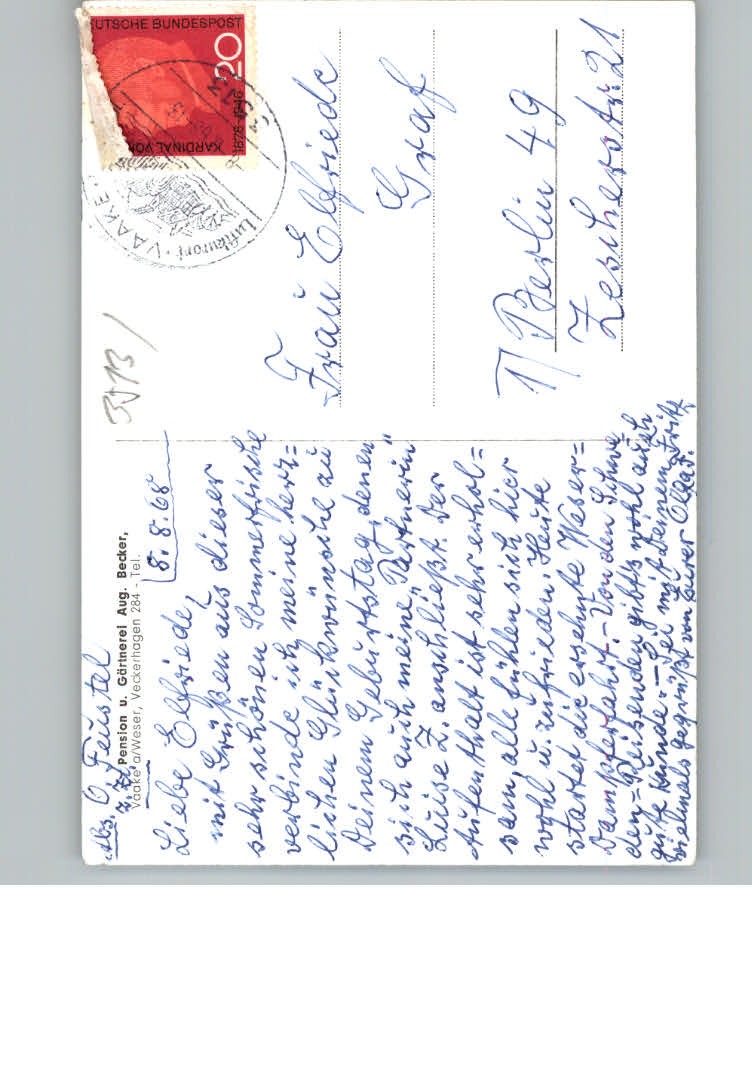 Abs. O. Feustel
z. Zt. Pension u. Gärtnerei Aug. Becker,
Vaake a/Weser, Veckerhagen 284 - Tel.
8.8.68
Liebe Elfriede,
mit Grüßen aus dieser
sehr schönen Sommerfrische
verbinde ich meine herz=
lichen Glückwünsche zu
Deinem Geburtstag, denen
sich auch meine "Partnerin"
Luise Z. anschließt. Der
Aufenthalt ist sehr erhol=
sam, alle fühlen sich hier
wohl u. zufrieden. Heute
startet die ersehnte Weser=
Dampferfahrt. - Von den Schwe
den=Reisenden gibt's wohl auch
gute Kunde? - Sei mit Deinem Fritz
vielmals gegrüßt von Eurer
3513
DEUTSCHE BUNDESPOST
20
1878-1946
KARDINAL VON
Luftkurort · VAAKE
Frau Elfriede
Graf
1/ Berlin 49
Zescherstr. 21